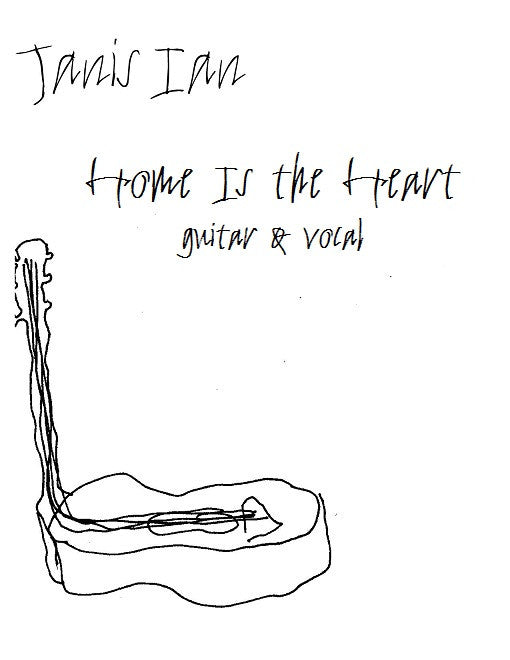 Janis Ian
Home Is the Heart
guitar & vocal